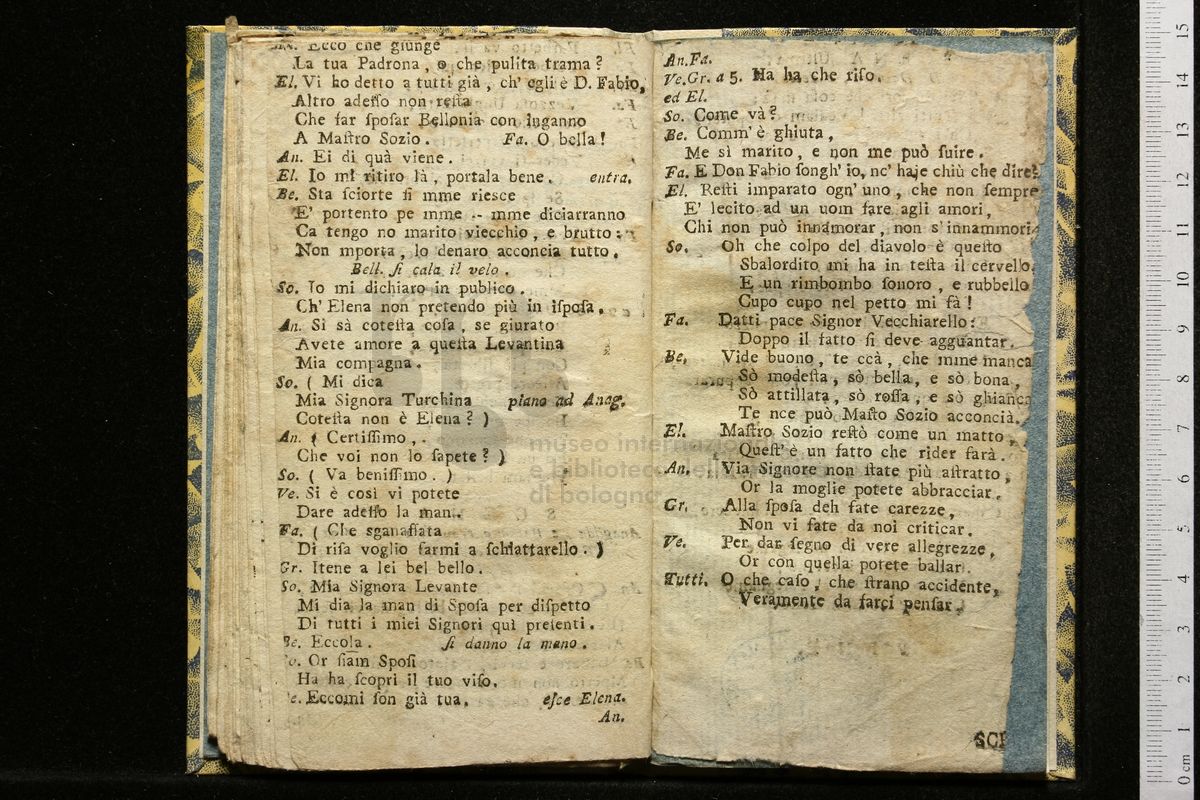 An. Ecco che giunge
La tua Padrona, o che pulita trama?
El. Vi ho detto a tutti già, ch' egli è D. Fabio,
Altro adesso non resta
Che far sposar Bellonia con inganno
A Mastro Sozio. Fa. O bella!
An. Ei di quà viene.
El. Io mi ritiro là, portala bene. entra.
Be. Sta sciorte si mme riesce
E' portento pe mme -- mme diciarranno
Ca tengo no marito viecchio, e brutto:
Non mporta, lo denaro acconcia tutto.
Bell. si cala il velo.
So. Io mi dichiaro in publico.
Ch' Elena non pretendo più in isposa.
An. Si sà cotesta cosa, se giurato
Avete amore a questa Levantina
Mia compagna.
So. ( Mi dica
Mia Signora Turchina piano ad Anag.
Cotesta non è Elena? )
An. ( Certissimo,
Che voi non lo sapete? )
So. ( Va benissimo. )
Ve. Si è così vi potete
Dare adesso la mano.
Fa. ( Che sganassata
Di risa voglio farmi a schiattarello. )
Gr. Itene a lei bel bello.
So. Mia Signora Levante
Mi dia la man di Sposa per dispetto
Di tutti i miei Signori quì presenti.
Be. Eccola. si danno la mano.
So. Or siam Sposi
Ha ha scopri il tuo viso.
Be. Eccomi son già tua. esce Elena.
An.
An.Fa.
Ve.Gr. a 5. Ha ha che riso.
ed El.
So. Come và?
Be. Comm' è ghiuta,
Me sì marito, e non me può fuire.
Fa. E Don Fabio songh' io, nc' haje chiù che dire?
El. Resti imparato ogn' uno, che non sempre
E' lecito ad un uom fare agli amori,
Chi non può innamorar, non s'innammori.
So. Oh che colpo del diavolo è questo
Sbalordito mi ha in testa il cervello.
E un rimbombo sonoro, e rubbello
Cupo cupo nel petto mi fà!
Fa. Datti pace Signor Vecchiarello:
Doppo il fatto si deve agguantar.
Be. Vide buono, te ccà, che mme manca
Sò modesta, sò bella, e sò bona,
Sò attillata, sò rossa, e sò ghianca
Te nce può Masto Sozio acconcià.
El. Mastro Sozio restò come un matto,
Quest' è un fatto che rider farà.
An. Via Signore non state più astratto,
Or la moglie potete abbracciar.
Gr. Alla sposa deh fate carezze,
Non vi fate da noi criticar.
Ve. Per dar segno di vere allegrezze,
Or con quella potete ballar.
Tutti. O che caso, che strano accidente,
Veramente da farci pensar.
museo internazionale
e biblioteca della
di bologna